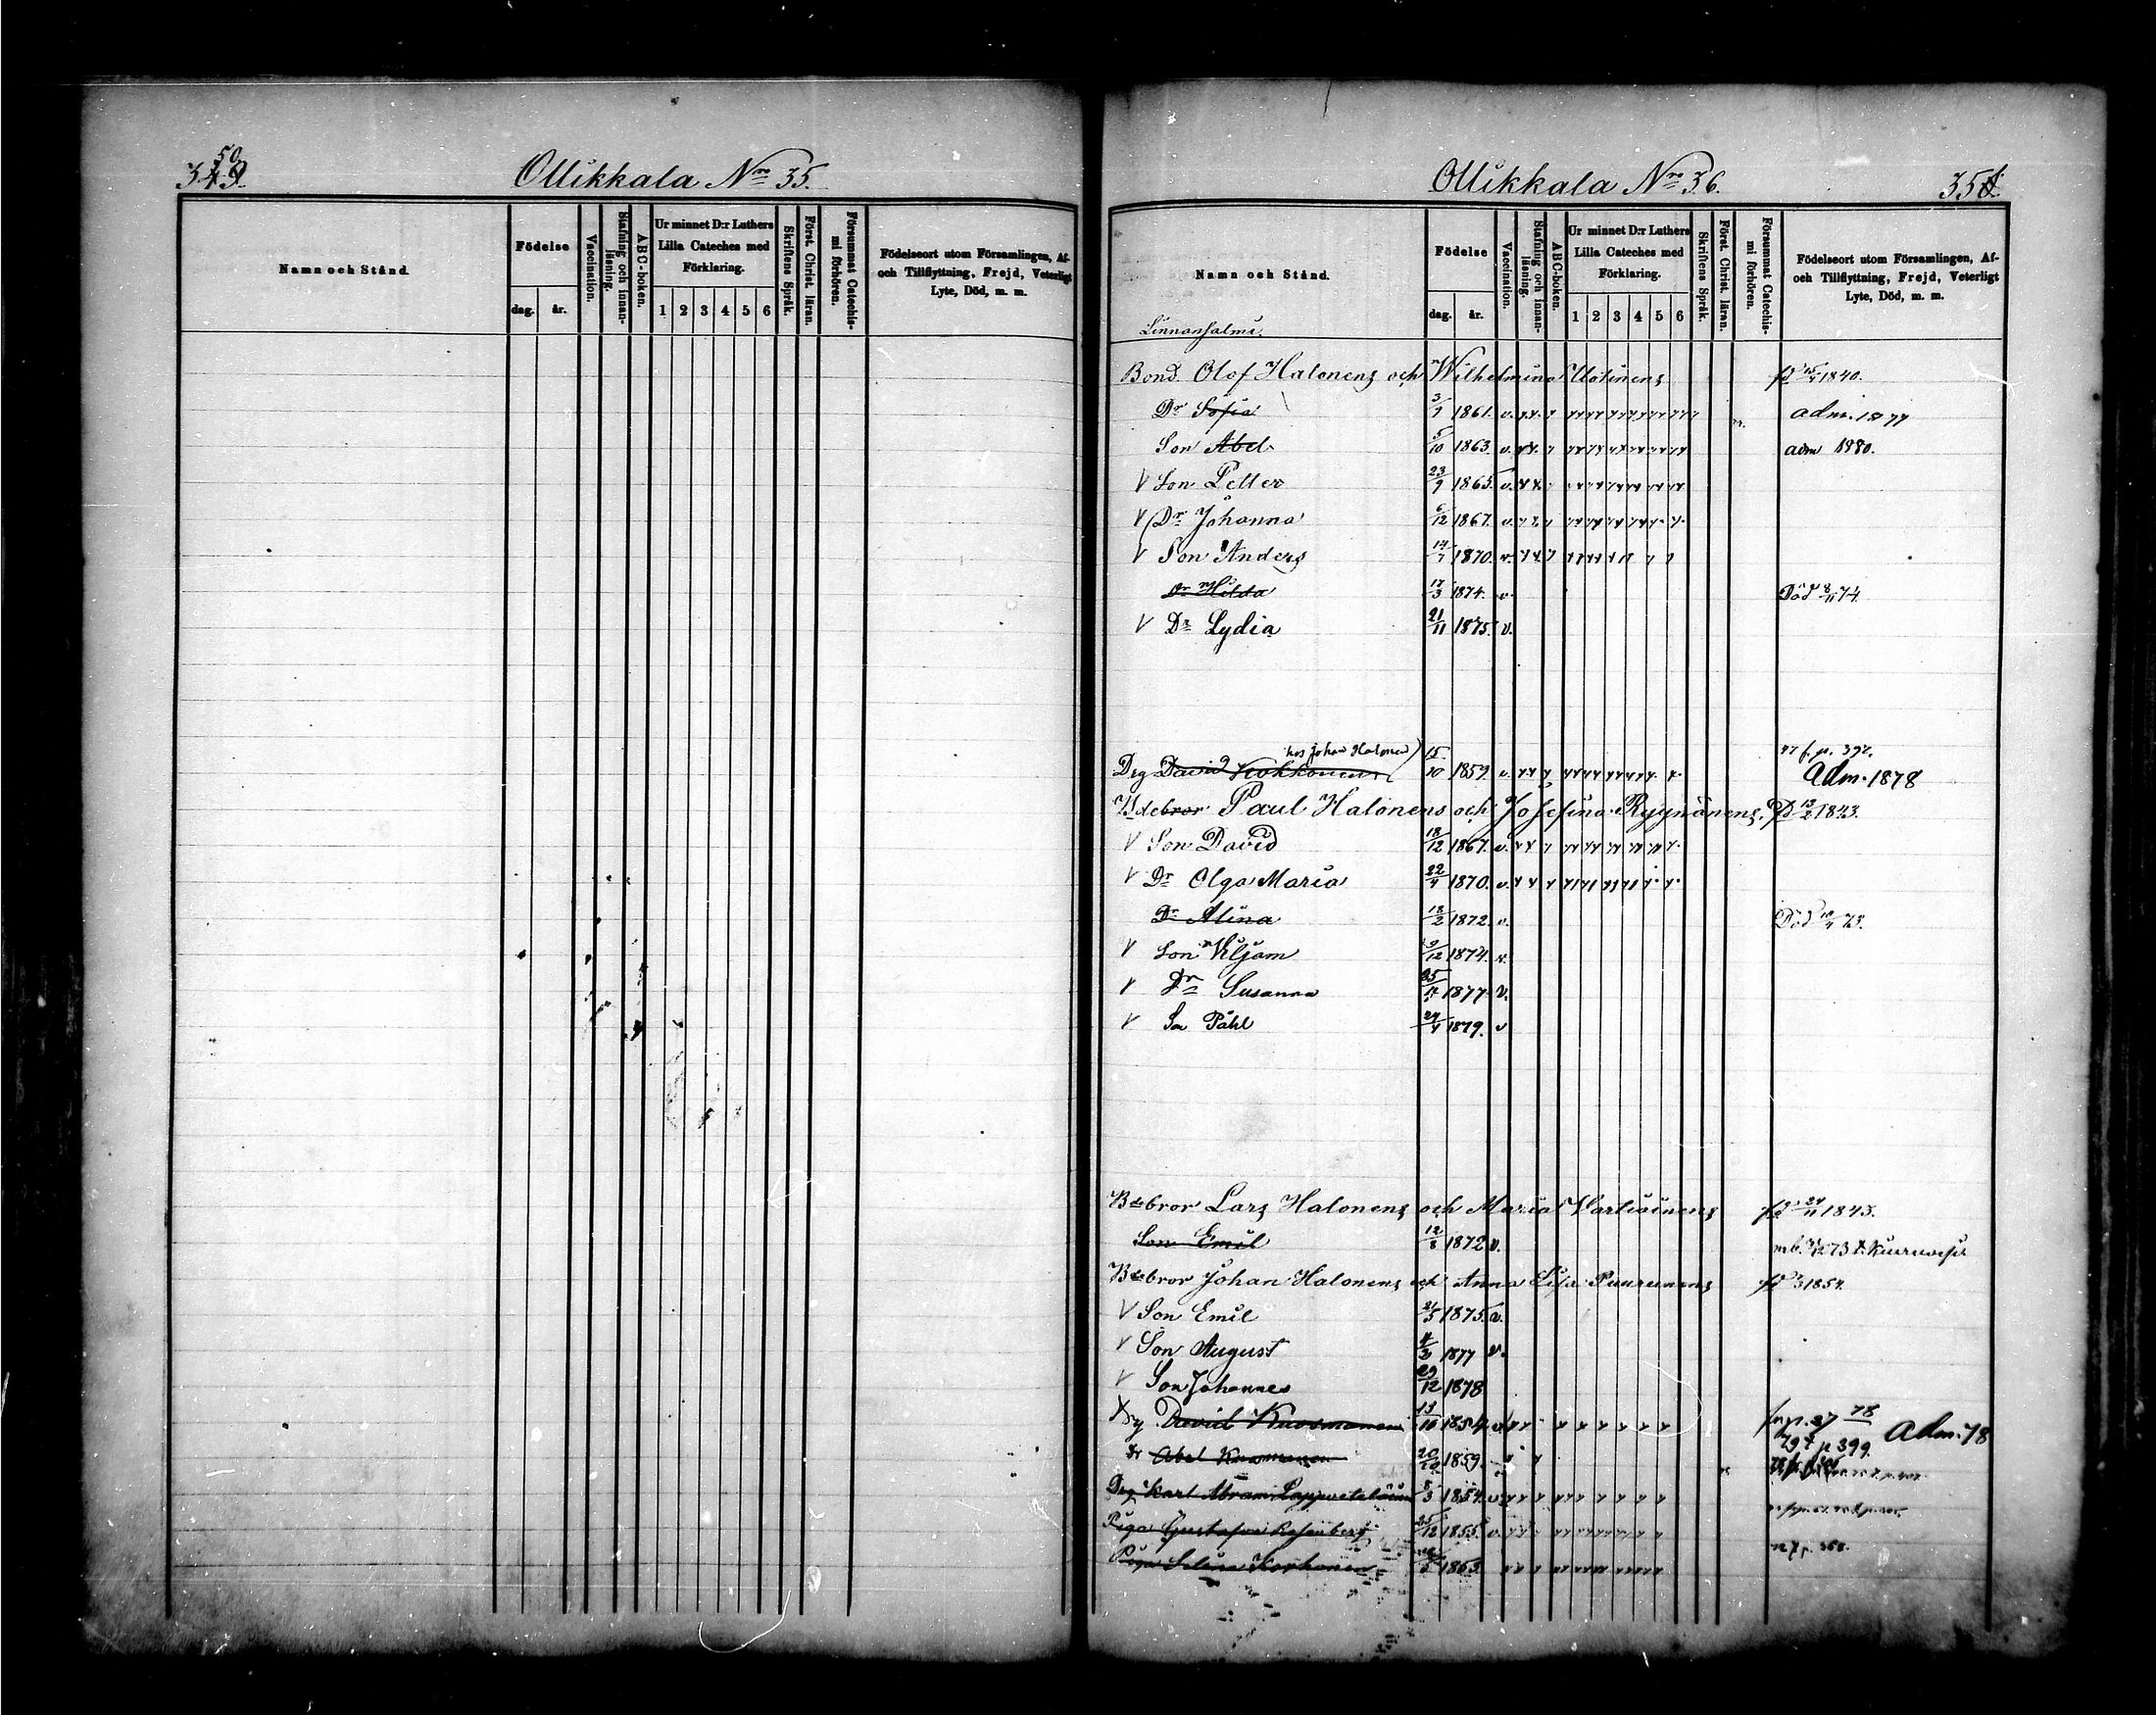 3450
Ollikkala Nro 35.
Namn och Stånd.
Födelse
dag. år.
Vaccination.
Stafning och innan-läsning.
ABC-boken.
Ur minnet D:r Luthers Lilla Cateches med Förklaring.
1 2 3 4 5 6
Skriftens Språk.
Först. Christ. läran.
Försummat Catechis-mi förhören.
Födelseort utom Församlingen, Af- och Tillflyttning, Frejd, Veterligt Lyte, Död, m. m.
Ollikkala Nro 36. 351
Namn och Stånd.
Födelse
dag. år.
Vaccination.
Stafning och innan-läsning.
ABC-boken.
Ur minnet D:r Luthers Lilla Cateches med Förklaring.
1 2 3 4 5 6
Skriftens Språk.
Först. Christ. läran.
Försummat Catechis-mi förhören.
Födelseort utom Församlingen, Af- och Tillflyttning, Frejd, Veterligt Lyte, Död, m. m.
Linnansalmi.
Bond. Olof Halonens och Wilhelmina Uotinens 1840.
Dr Sofia 1861. v. adm. 1877
Son Abel 5/10 1863. v. adm 1880.
V Son Petter 23/9 1865. v.
V Dr Johanna 6/12 1867. v.
V Son Anders 17/7 1870. v.
Dr Hilda 17/3 1874. v. Död 8/11 74.
V Dr Lydia 21/11 1875. v.
hos Johan Halonen 77 f. p. 397.
Drg David Kokkonen 15/10 1859. v. Adm. 1878
Bdebror Paul Halonens och Josefina Ryynänens, fd 13/2 1843.
V Son David 18/12 1867. v.
V Dr Olga Maria 22/4 1870. v.
Dr Alina 18/2 1872. v. Död 73.
V Son Viljam 9/12 1874. v.
V Dr Susanna 25 1877 v.
V So Påhl 24/4 1879. v
Bdebror Lars Halonens och Maria Vartiainens fd 24/11 1845.
Son Emil 12/8 1872 v. mb. 73 t.
Bdebror Johan Halonens och Anna Lisa Puurunens fd 1854.
V Son Emil 1875. v.
V Son August 4/2 1877 v.
V Son Johannes 29/12 1878
Drg David Kuosmanen 13/10 1854. v. Adm. 78
Dr Abel Kuosmanen 1859. 79 t p 399.
Drg Karl Abram Lappveteläinen 8/3 1854. v
Piga Gustafva Rosenberg 25/12 1855. v.
Piga Selina Korhonen 1863.